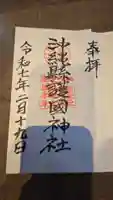 奉拝
沖縄縣護國神社
令和七年二月十九日